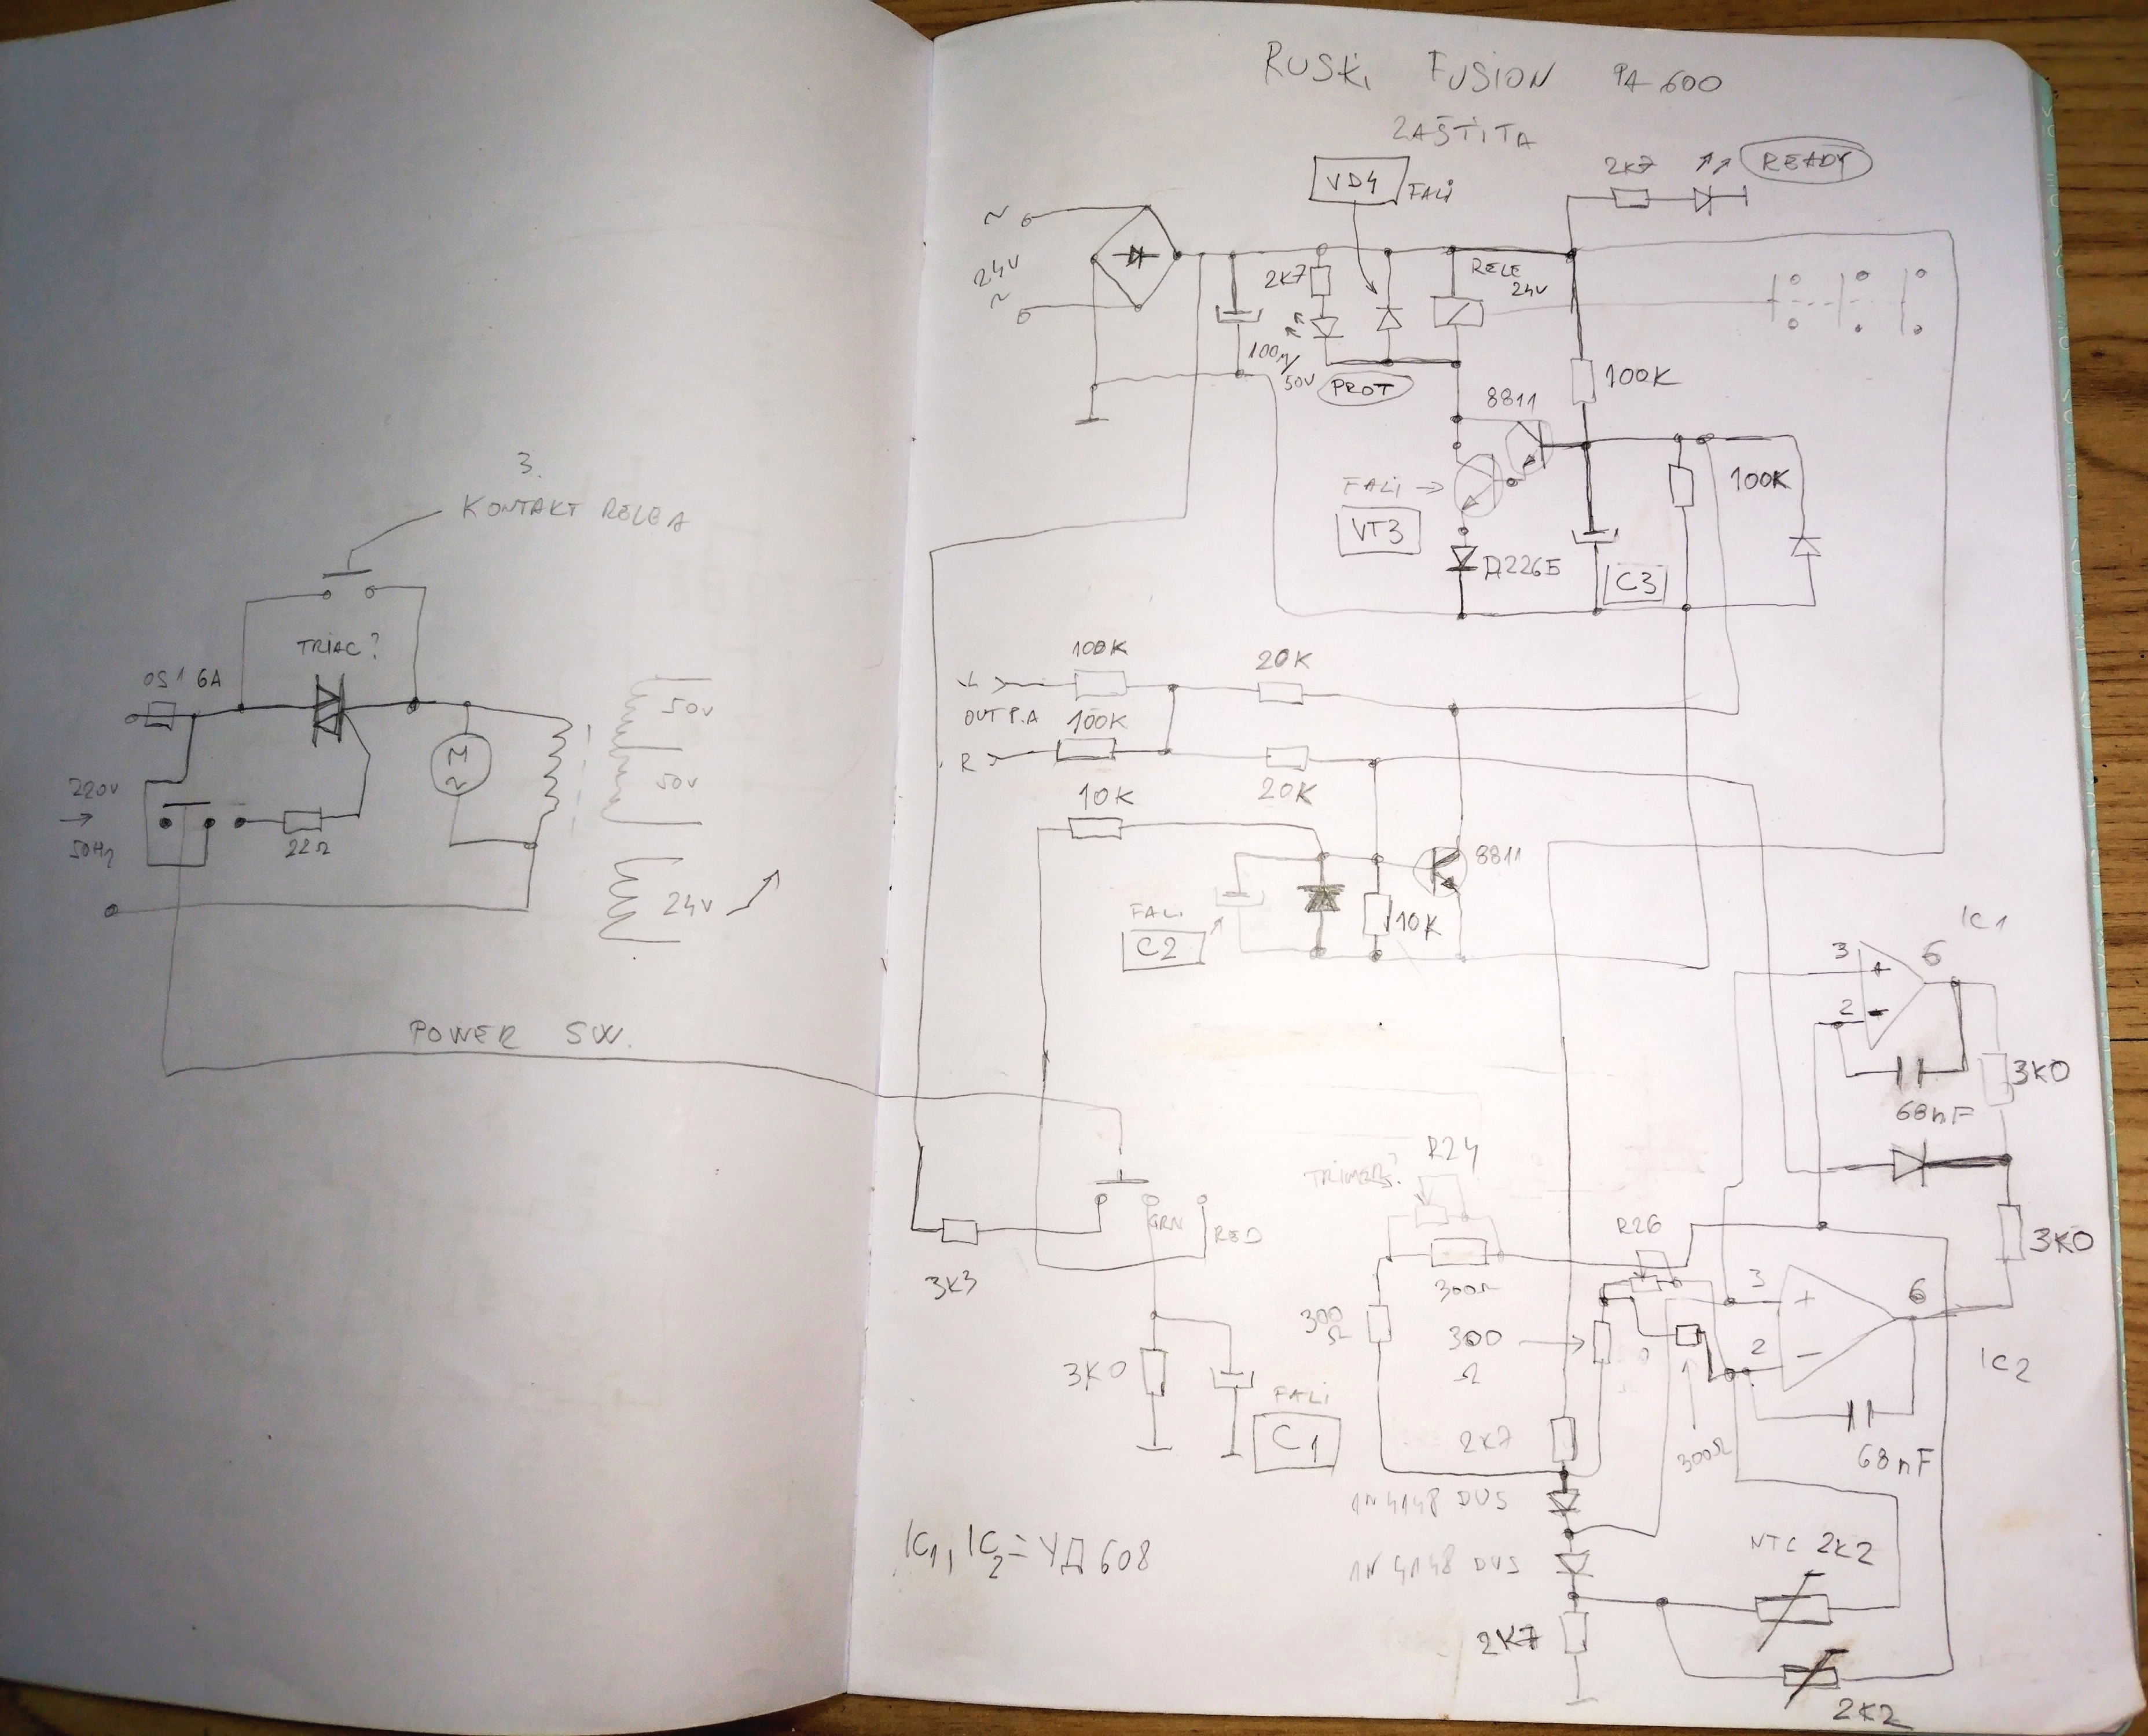 3.
KONTAKT RELEA
TRIAC?
OS1 6A
50V
M
220V
50V
50Hz
22Ω
24V
POWER SW.
RUSKI FUSION PA 600
ZAŠTITA
2K7
READY
VD4
FALI
24V
2K7
RELE
24V
100M/
50V
PROT
100K
8811
FALI
VT3
100K
Д226Б
C3
100K
20K
L
OUT P.A
100K
R
20K
10K
8811
FALI
C2
10K
IC1
3
+
6
2
-
3K0
68nF
R24
TRIMER?
GRN
RED
R26
3K0
3K3
300Ω
3
+
6
300
Ω
300
Ω
2
-
IC2
3K0
FALI
C1
2K7
300Ω
68nF
1N4148 DUS
IC1, IC2 = УД608
1N4148 DUS
NTC 2K2
2K7
2K2